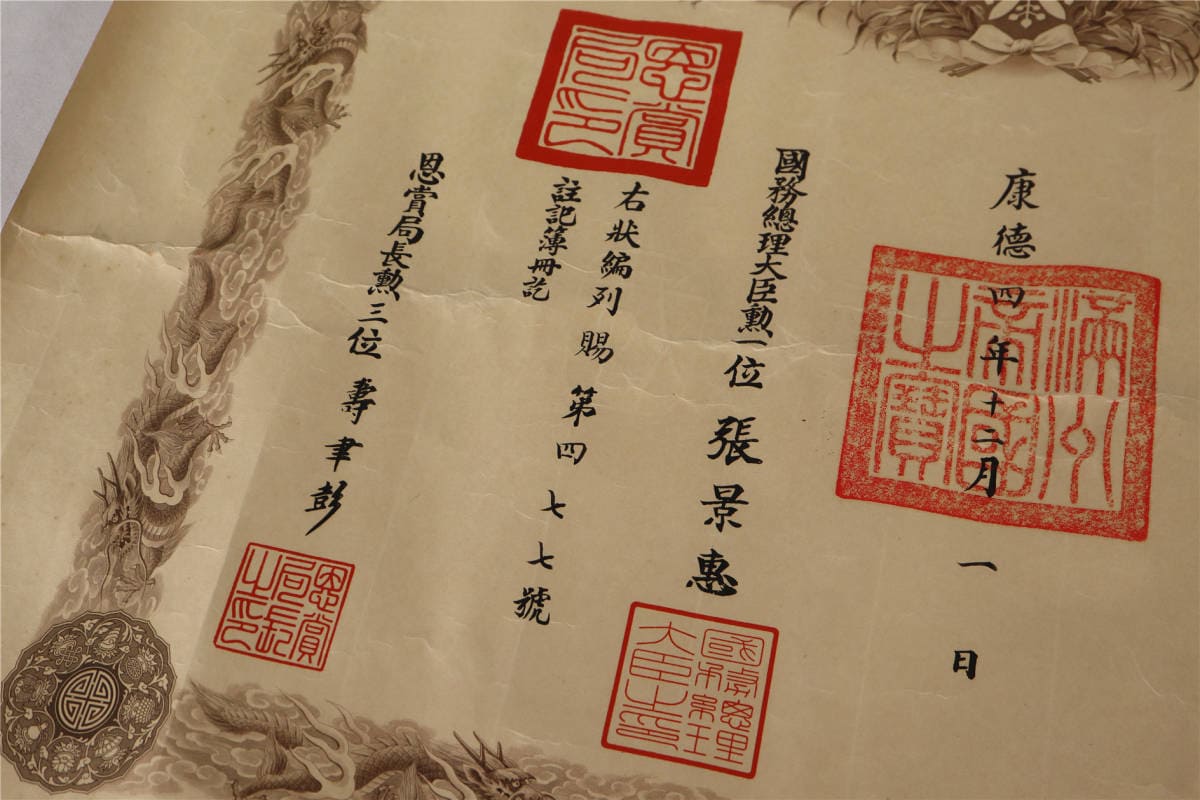 康德四年十二月一日
滿洲帝國之寶
國務總理大臣勳一位 張景惠
國務總理大臣之印
恩賞局印
右狀編列賜第四七七號
註記簿冊訖
恩賞局長勳三位 壽聿彭
恩賞局長之印